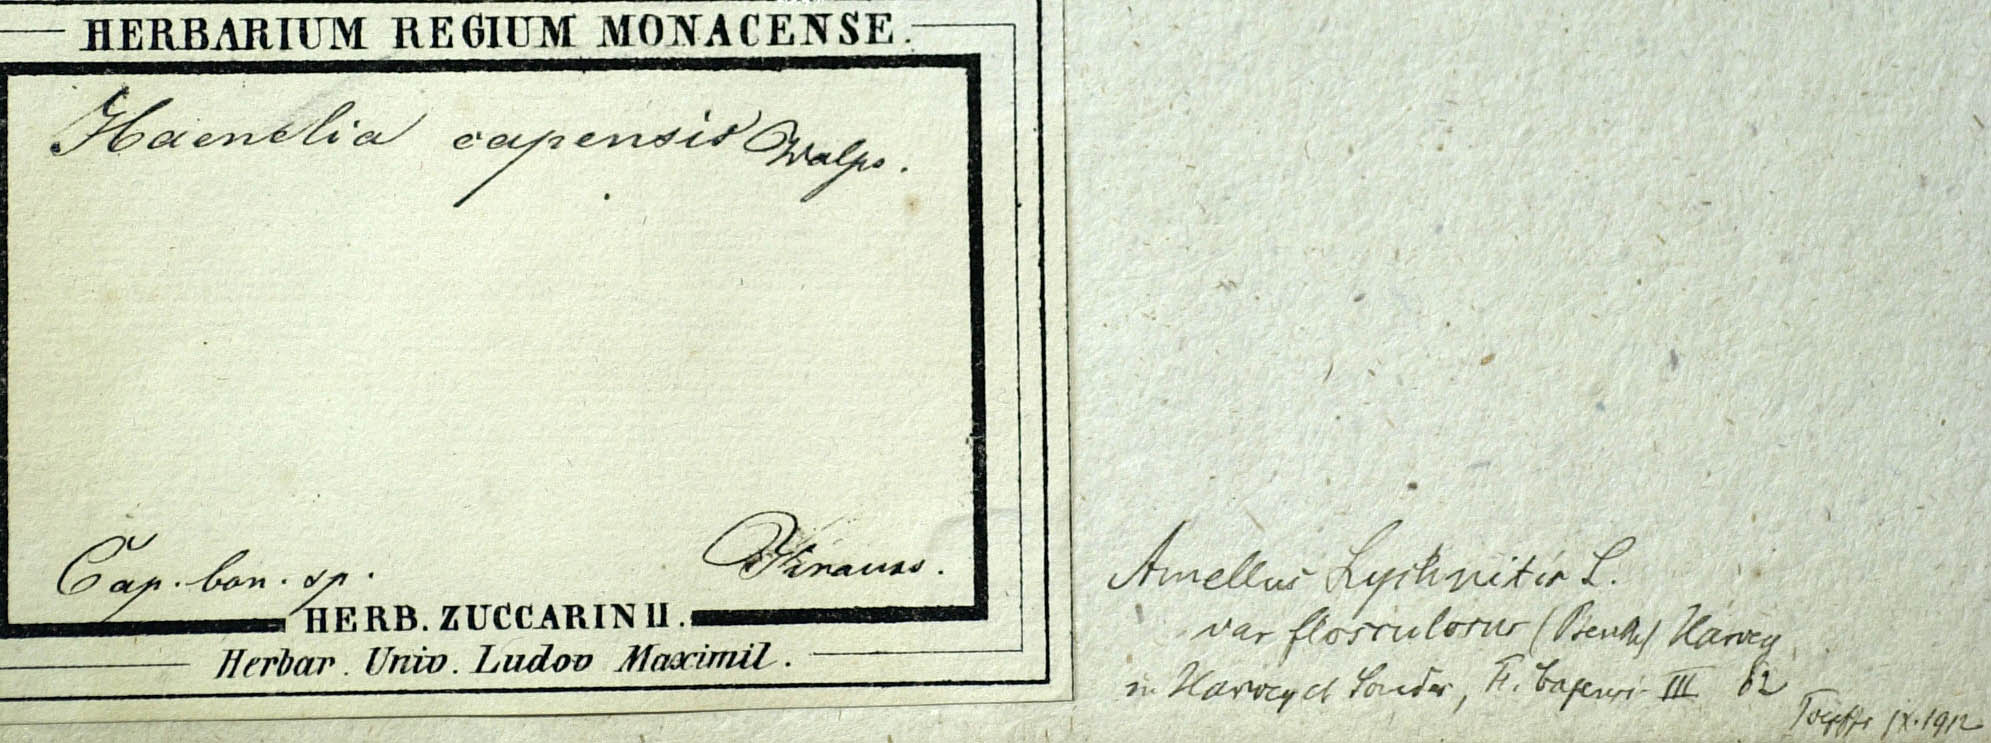 HERBARIUM REGIUM MONACENSE.
Haenelia capensis Walps.
Cap. bon. sp.
Krauss.
HERB. ZUCCARINII.
Herbar. Univ. Ludov Maximil.
Amellus Lychnitis L.
var flosculosus (Benth) Harvey
in Harvey et Sonder, Fl. Capensi III 62
IX.1912